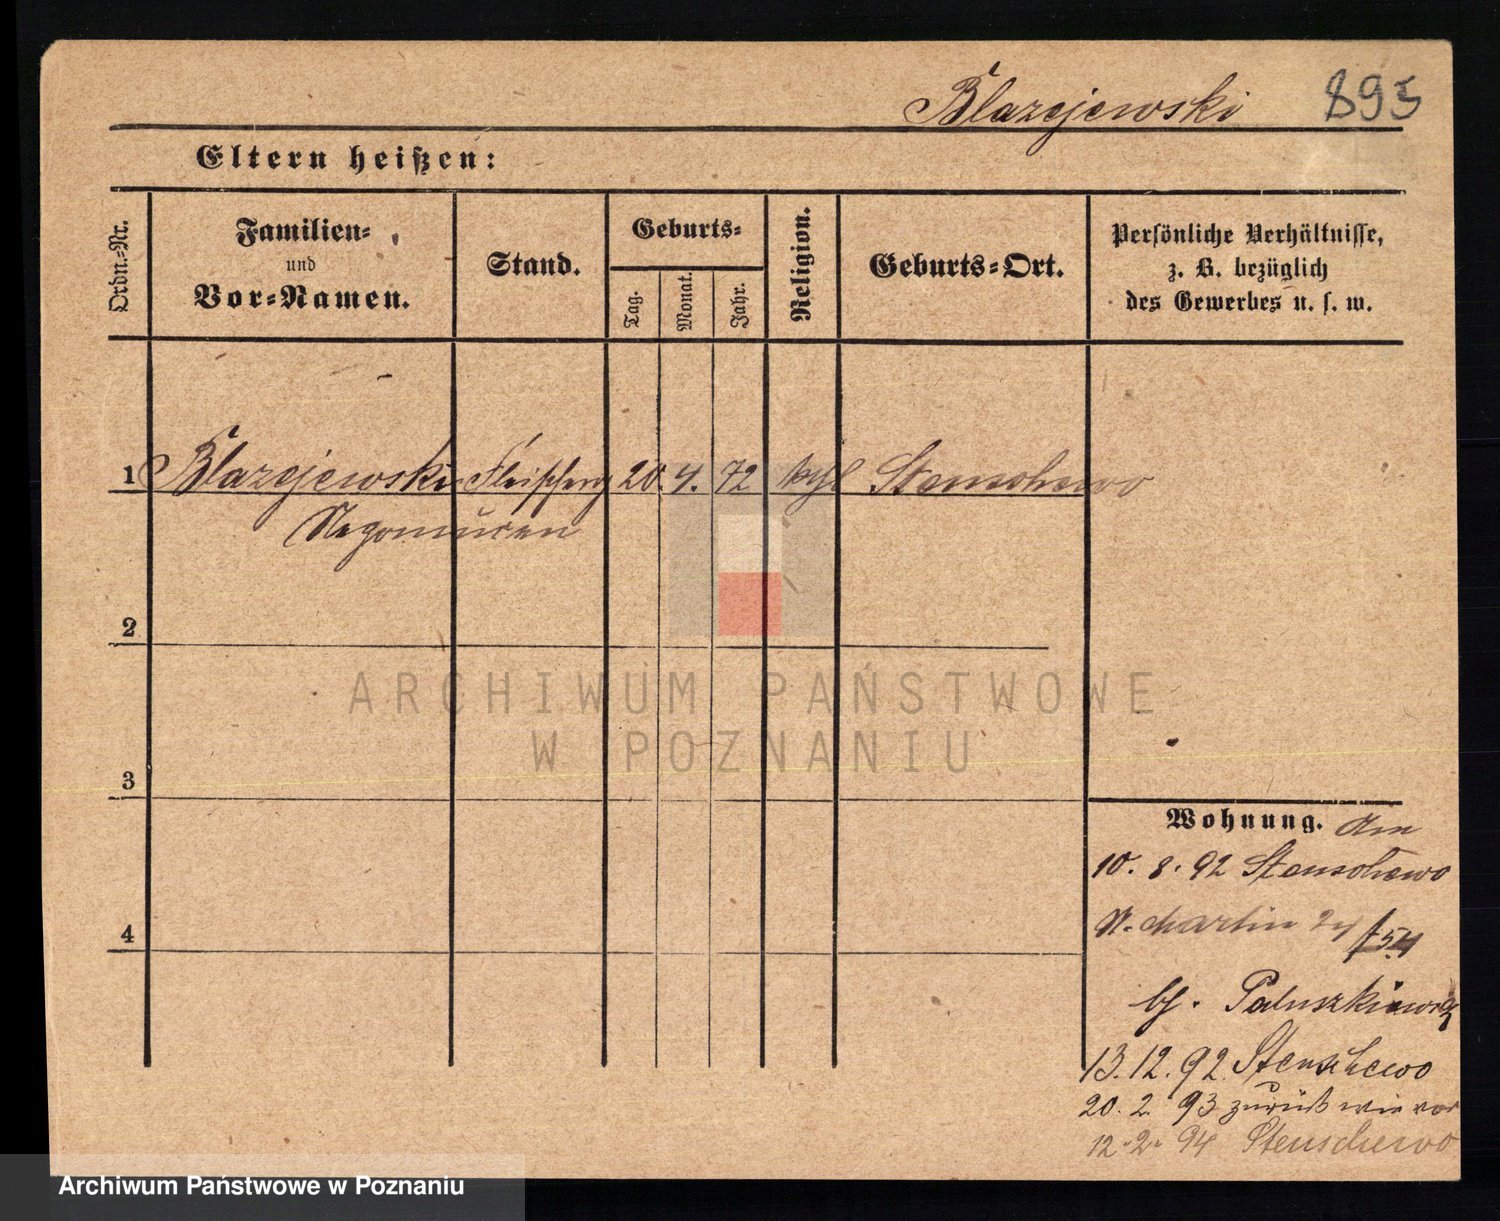 Blazejewski 895
Eltern heißen:
Ordn.-Nr.
Familien-
und
Vor-Namen.
Stand.
Geburts-
Tag.
Monat.
Jahr.
Religion.
Geburts-Ort.
Persönliche Verhältnisse,
z. B. bezüglich
des Gewerbes u. s. w.
1 Blazejewski Fleischerg 20. 4. 72 kath Stenschewo
2
3
4
Wohnung. Am
10. 8. 92 Stenschewo
St. Martin 24 /54
bf. Paluszkiewicz
13. 12. 92 Stenschewo
20. 2. 93 zurück wie vor
12. 2. 94 Stenschewo
ARCHIWUM PAŃSTWOWE
W POZNANIU
Archiwum Państwowe w Poznaniu